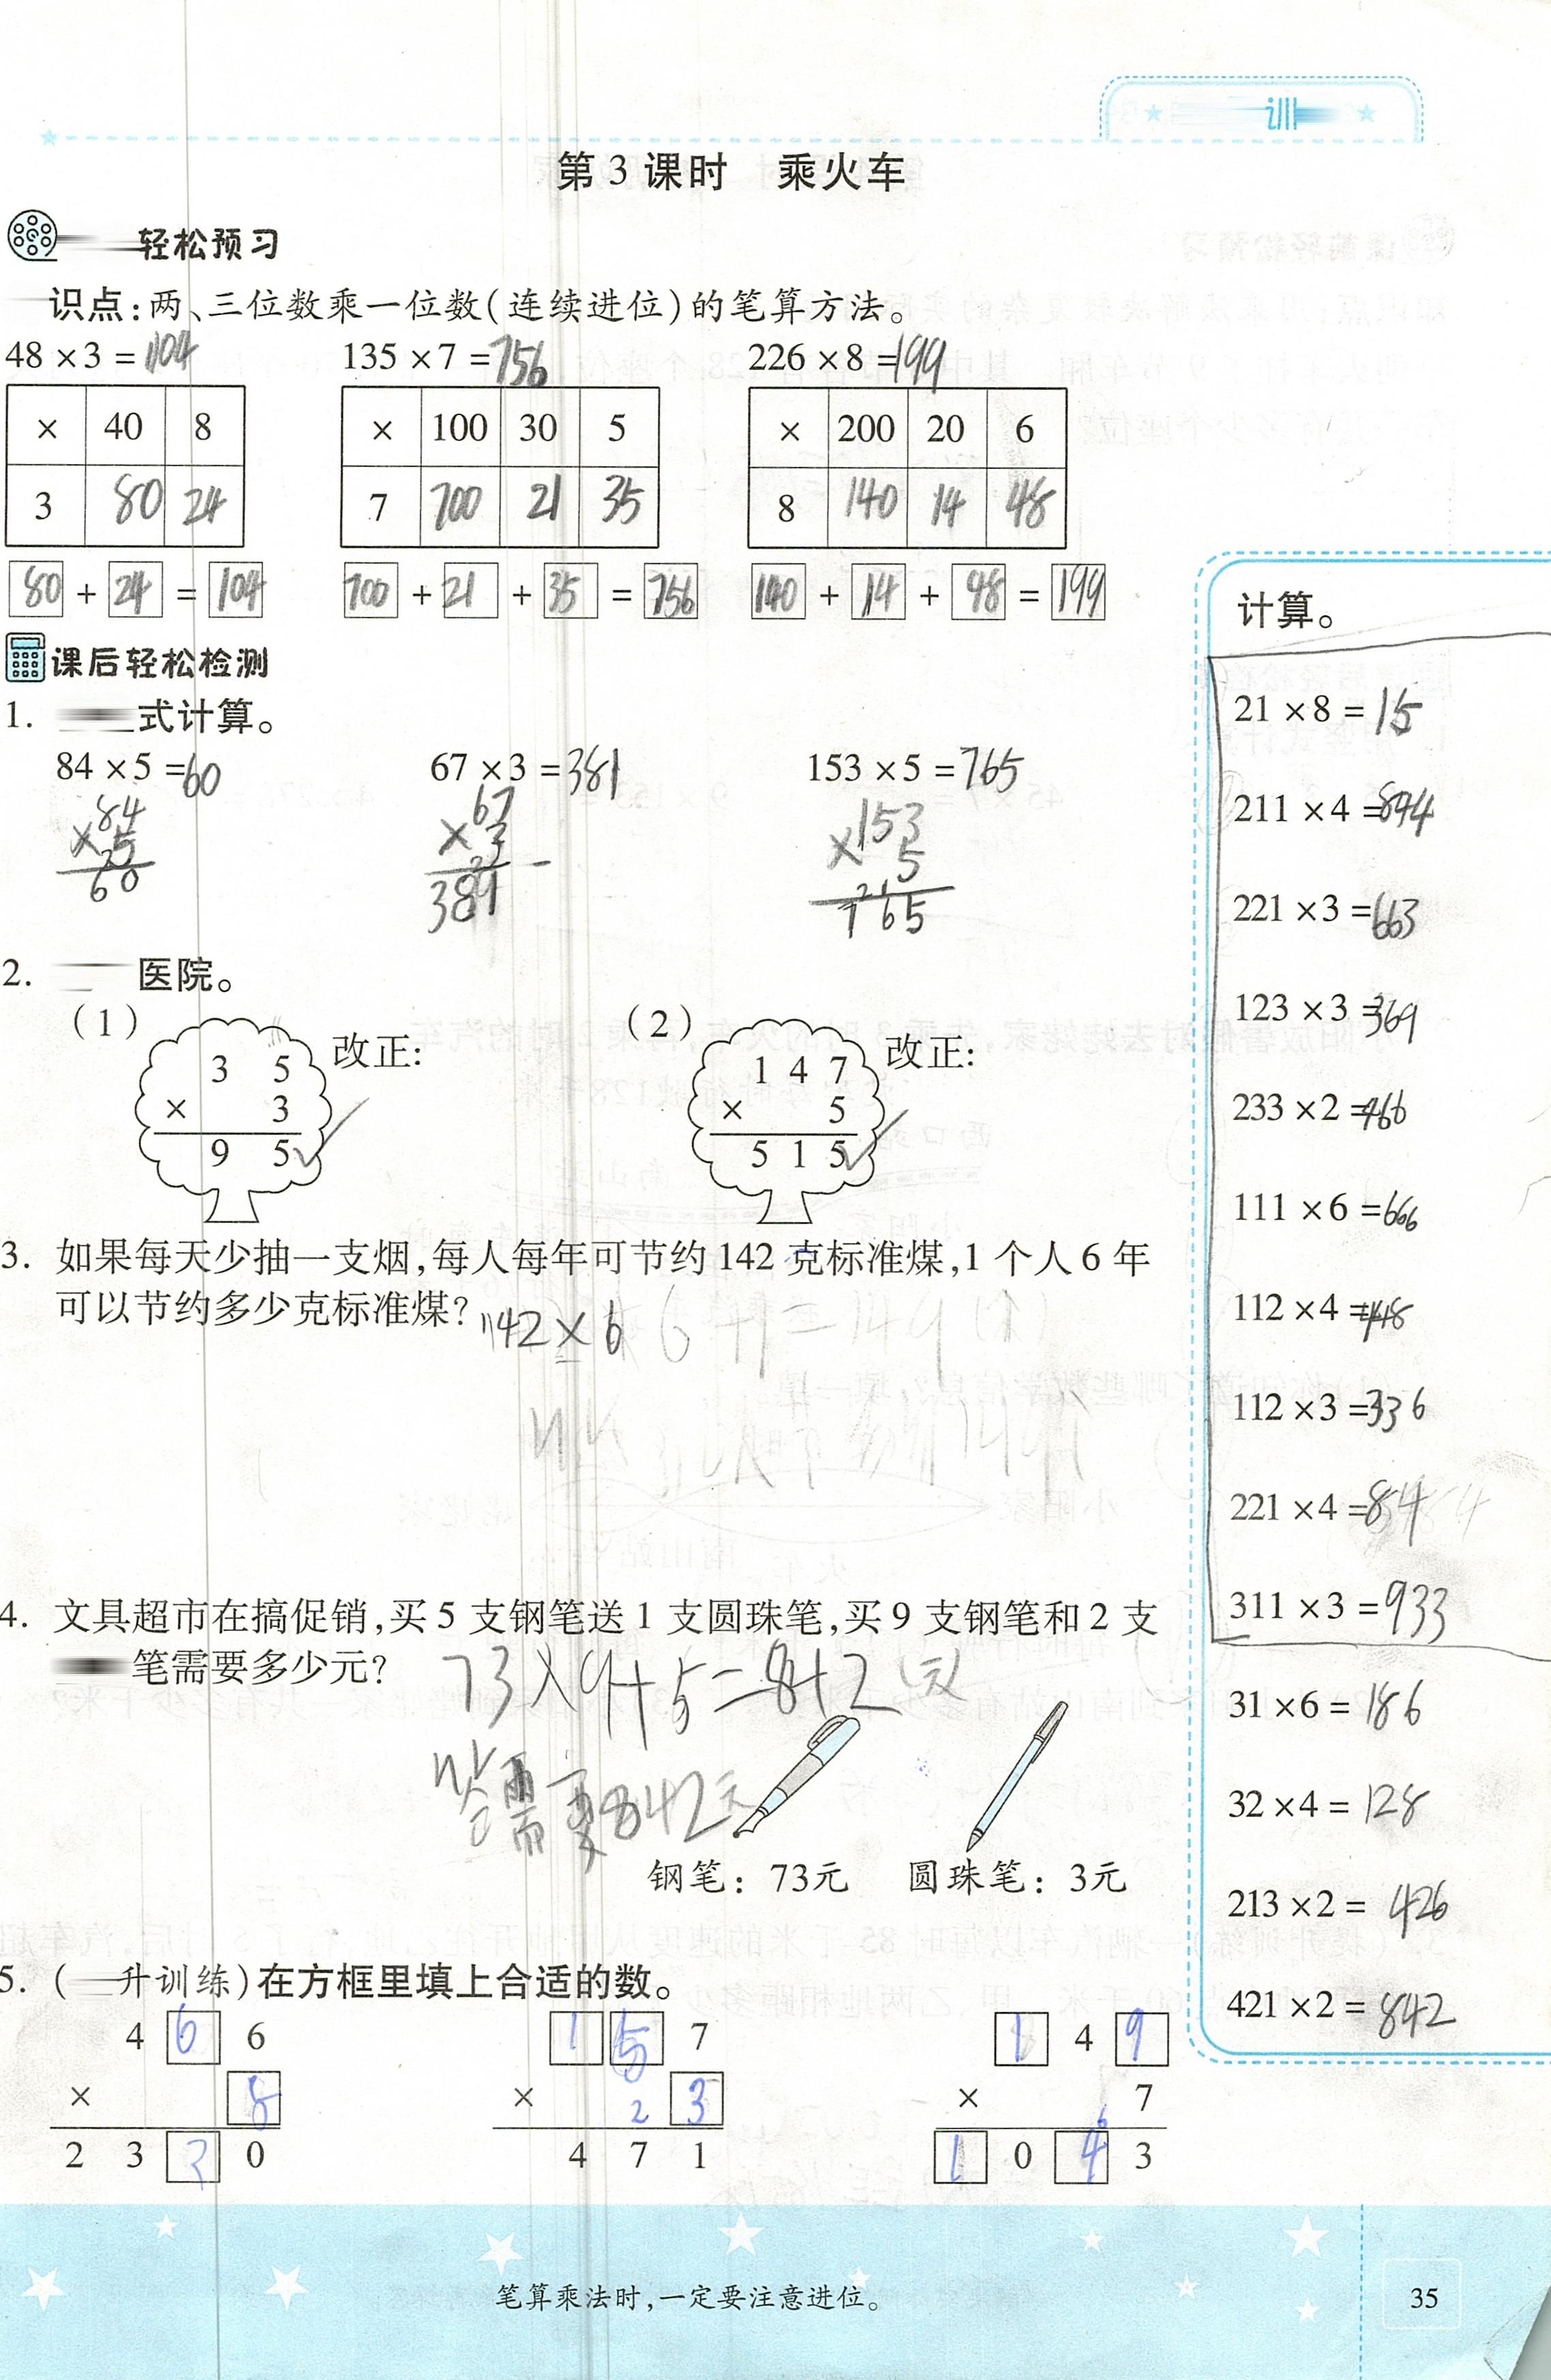 训
第3课时 乘火车
轻松预习
识点:两、三位数乘一位数(连续进位)的笔算方法。
48×3=104 135×7=756 226×8=199
× 40 8 × 100 30 5 × 200 20 6
3 80 24 7 700 21 35 8 140 14 48
80+24=104 700+21+35=756 140+14+48=199
课后轻松检测
1. 式计算。
84×5=60 67×3=381 153×5=765
84 67 153
×5 ×3 ×5
60 381 765
2. 医院。
(1) 改正: (2) 改正:
3 5 1 4 7
× 3 × 5
9 5 5 1 5
3. 如果每天少抽一支烟,每人每年可节约142克标准煤,1个人6年
可以节约多少克标准煤? 142×6
4. 文具超市在搞促销,买5支钢笔送1支圆珠笔,买9支钢笔和2支
笔需要多少元? 73×9+5=842(元)
答需要842元
钢笔:73元 圆珠笔:3元
5. (升训练)在方框里填上合适的数。
4 6 6 1 5 7 1 4 9
× × 2 3 × 6 7
2 3 3 0 4 7 1 1 0 4 3
计算。
21×8=15
211×4=844
221×3=663
123×3=369
233×2=466
111×6=666
112×4=448
112×3=336
221×4=84
311×3=933
31×6=186
32×4=128
213×2=426
421×2=842
笔算乘法时,一定要注意进位。
35